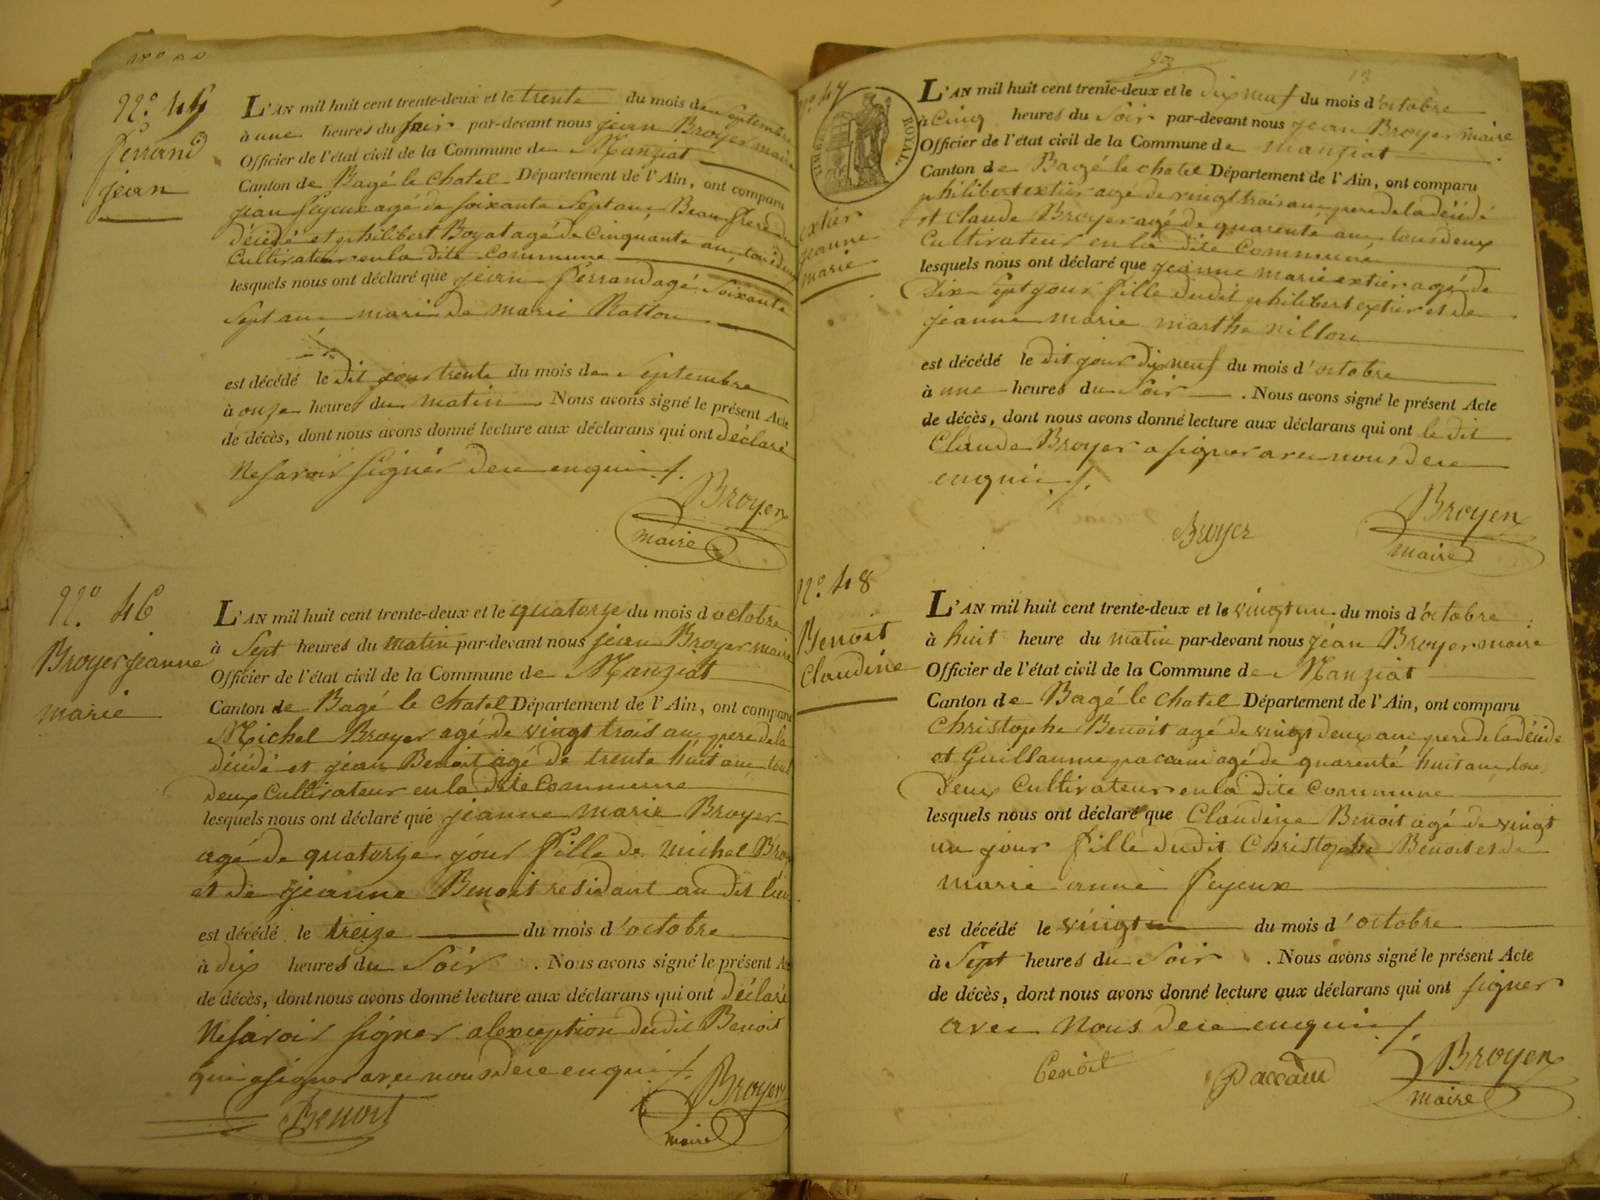 N.º 45
ferrand
jean
L'AN mil huit cent trente-deux et le trente du mois de Septembre
à une heures du soir par-devant nous jean Broyer maire
Officier de l'état civil de la Commune de Manziat
Canton de Bagé le chatel Département de l'Ain, ont comparu
jean feyeux agé de soixante Sept ans Beau frere du
décédé et philibert Boyat agé de Cinquante ans tous deux
Cultivateur en la dite Commune
lesquels nous ont déclaré que jean ferrand agé Soixante
Sept ans mari de marie Ratton
est décédé le dit jour trente du mois de Septembre
à onze heures du matin . Nous avons signé le présent Acte
de décès, dont nous avons donné lecture aux déclarans qui ont déclaré
Ne savoir signér de ce enquis
Broyer
maire
N.º 46
Broyer jeanne
marie
L'AN mil huit cent trente-deux et le quatorze du mois d octobre
à Sept heures du matin par-devant nous jean Broyer maire
Officier de l'état civil de la Commune de Manziat
Canton de Bagé le chatel Département de l'Ain, ont comparu
Michel Broyer agé de vingt trois ans pere de la
décédé et jean Benoit agé de trente huit ans tous
deux Cultivateur en la dite Commune
lesquels nous ont déclaré que jeanne marie Broyer
agé de quatorze jour fille de michel Broy
et de jeanne Benoit residant au dit lieu
est décédé le treize du mois d'octobre
à dix heures du Soir . Nous avons signé le présent A
de décès, dont nous avons donné lecture aux déclarans qui ont déclaré
Ne savoir signer alexception dudit Benoit
qui a signer avec nous de ce enquis
Benoit
Broyer
maire
N.º 47
extier
jeanne
marie
TIMBRE ROYAL.
L'AN mil huit cent trente-deux et le dix neuf du mois d'octobre
à Cinq heures du Soir par-devant nous jean Broyer maire
Officier de l'état civil de la Commune de manziat
Canton de Bagé le chatel Département de l'Ain, ont comparu
philibert extier agé de vingt trois ans pere de la décédé
et Claude Broyer agé de quarente ans tous deux
Cultivateur en la dite Commune
lesquels nous ont déclaré que jeanne marie extier agé de
Dix Sept jour fille dudit philibert extier et de
jeanne marie marthe nillon
est décédé le dit jour dix neuf du mois d'octobre
à une heures du Soir . Nous avons signé le présent Acte
de décès, dont nous avons donné lecture aux déclarans qui ont le dit
Claude Broyer a signer avec nous de ce
enquis
Broyer
Broyer
maire
N.º 48
Benoit
Claudine
L'AN mil huit cent trente-deux et le vingt un du mois d'octobre
à huit heure du matin par-devant nous jean Broyer maire
Officier de l'état civil de la Commune de Manziat
Canton de Bagé le chatel Département de l'Ain, ont comparu
Christophe Benoit agé de vingt deux ans pere de la décédé
et Guillaume paccaud agé de quarenté huit ans tous
Deux Cultivateur en la dite Commune
lesquels nous ont déclaré que Claudine Benoit agé de vingt
un jour fille dudit Christophe Benoit et de
marie anne feyeux
est décédé le vingt du mois d'octobre
à Sept heures du Soir . Nous avons signé le présent Acte
de décès, dont nous avons donné lecture aux déclarans qui ont signer
avec Nous de ce enquis
Benoit
Paccaud
Broyer
maire